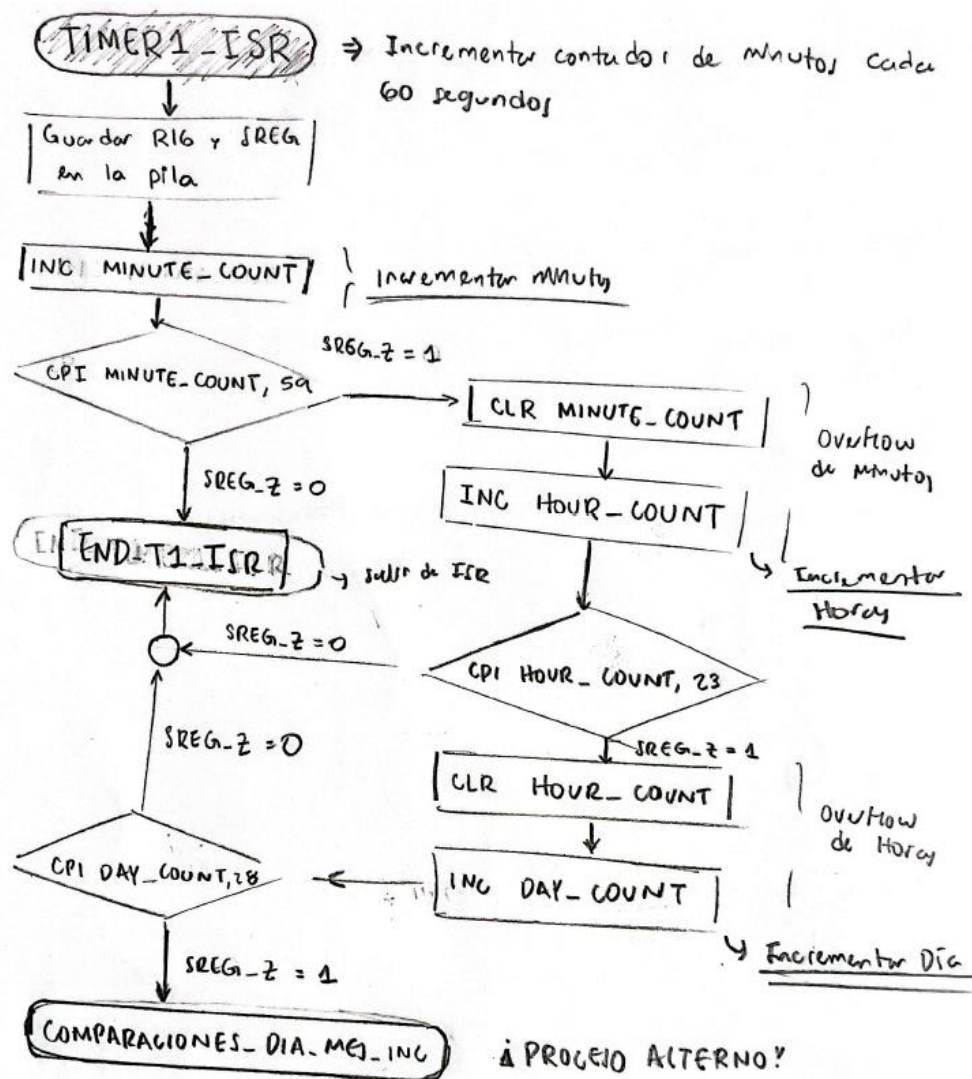 TIMER1_ISR
⇒ Incrementar contador de minutos cada
60 segundos
Guardar R16 y SREG
en la pila
INC MINUTE_COUNT
Incrementar minutos
CPI MINUTE_COUNT, 59
SREG_Z = 1
CLR MINUTE_COUNT
Overflow
de minutos
SREG_Z = 0
INC HOUR_COUNT
END_T1_ISR
salir de ISR
Incrementar
Horas
SREG_Z = 0
CPI HOUR_COUNT, 23
SREG_Z = 0
SREG_Z = 1
CLR HOUR_COUNT
Overflow
de Horas
CPI DAY_COUNT, 28
INC DAY_COUNT
SREG_Z = 1
Incrementar Día
COMPARACIONES_DIA_MES_INC
¡PROCESO ALTERNO!